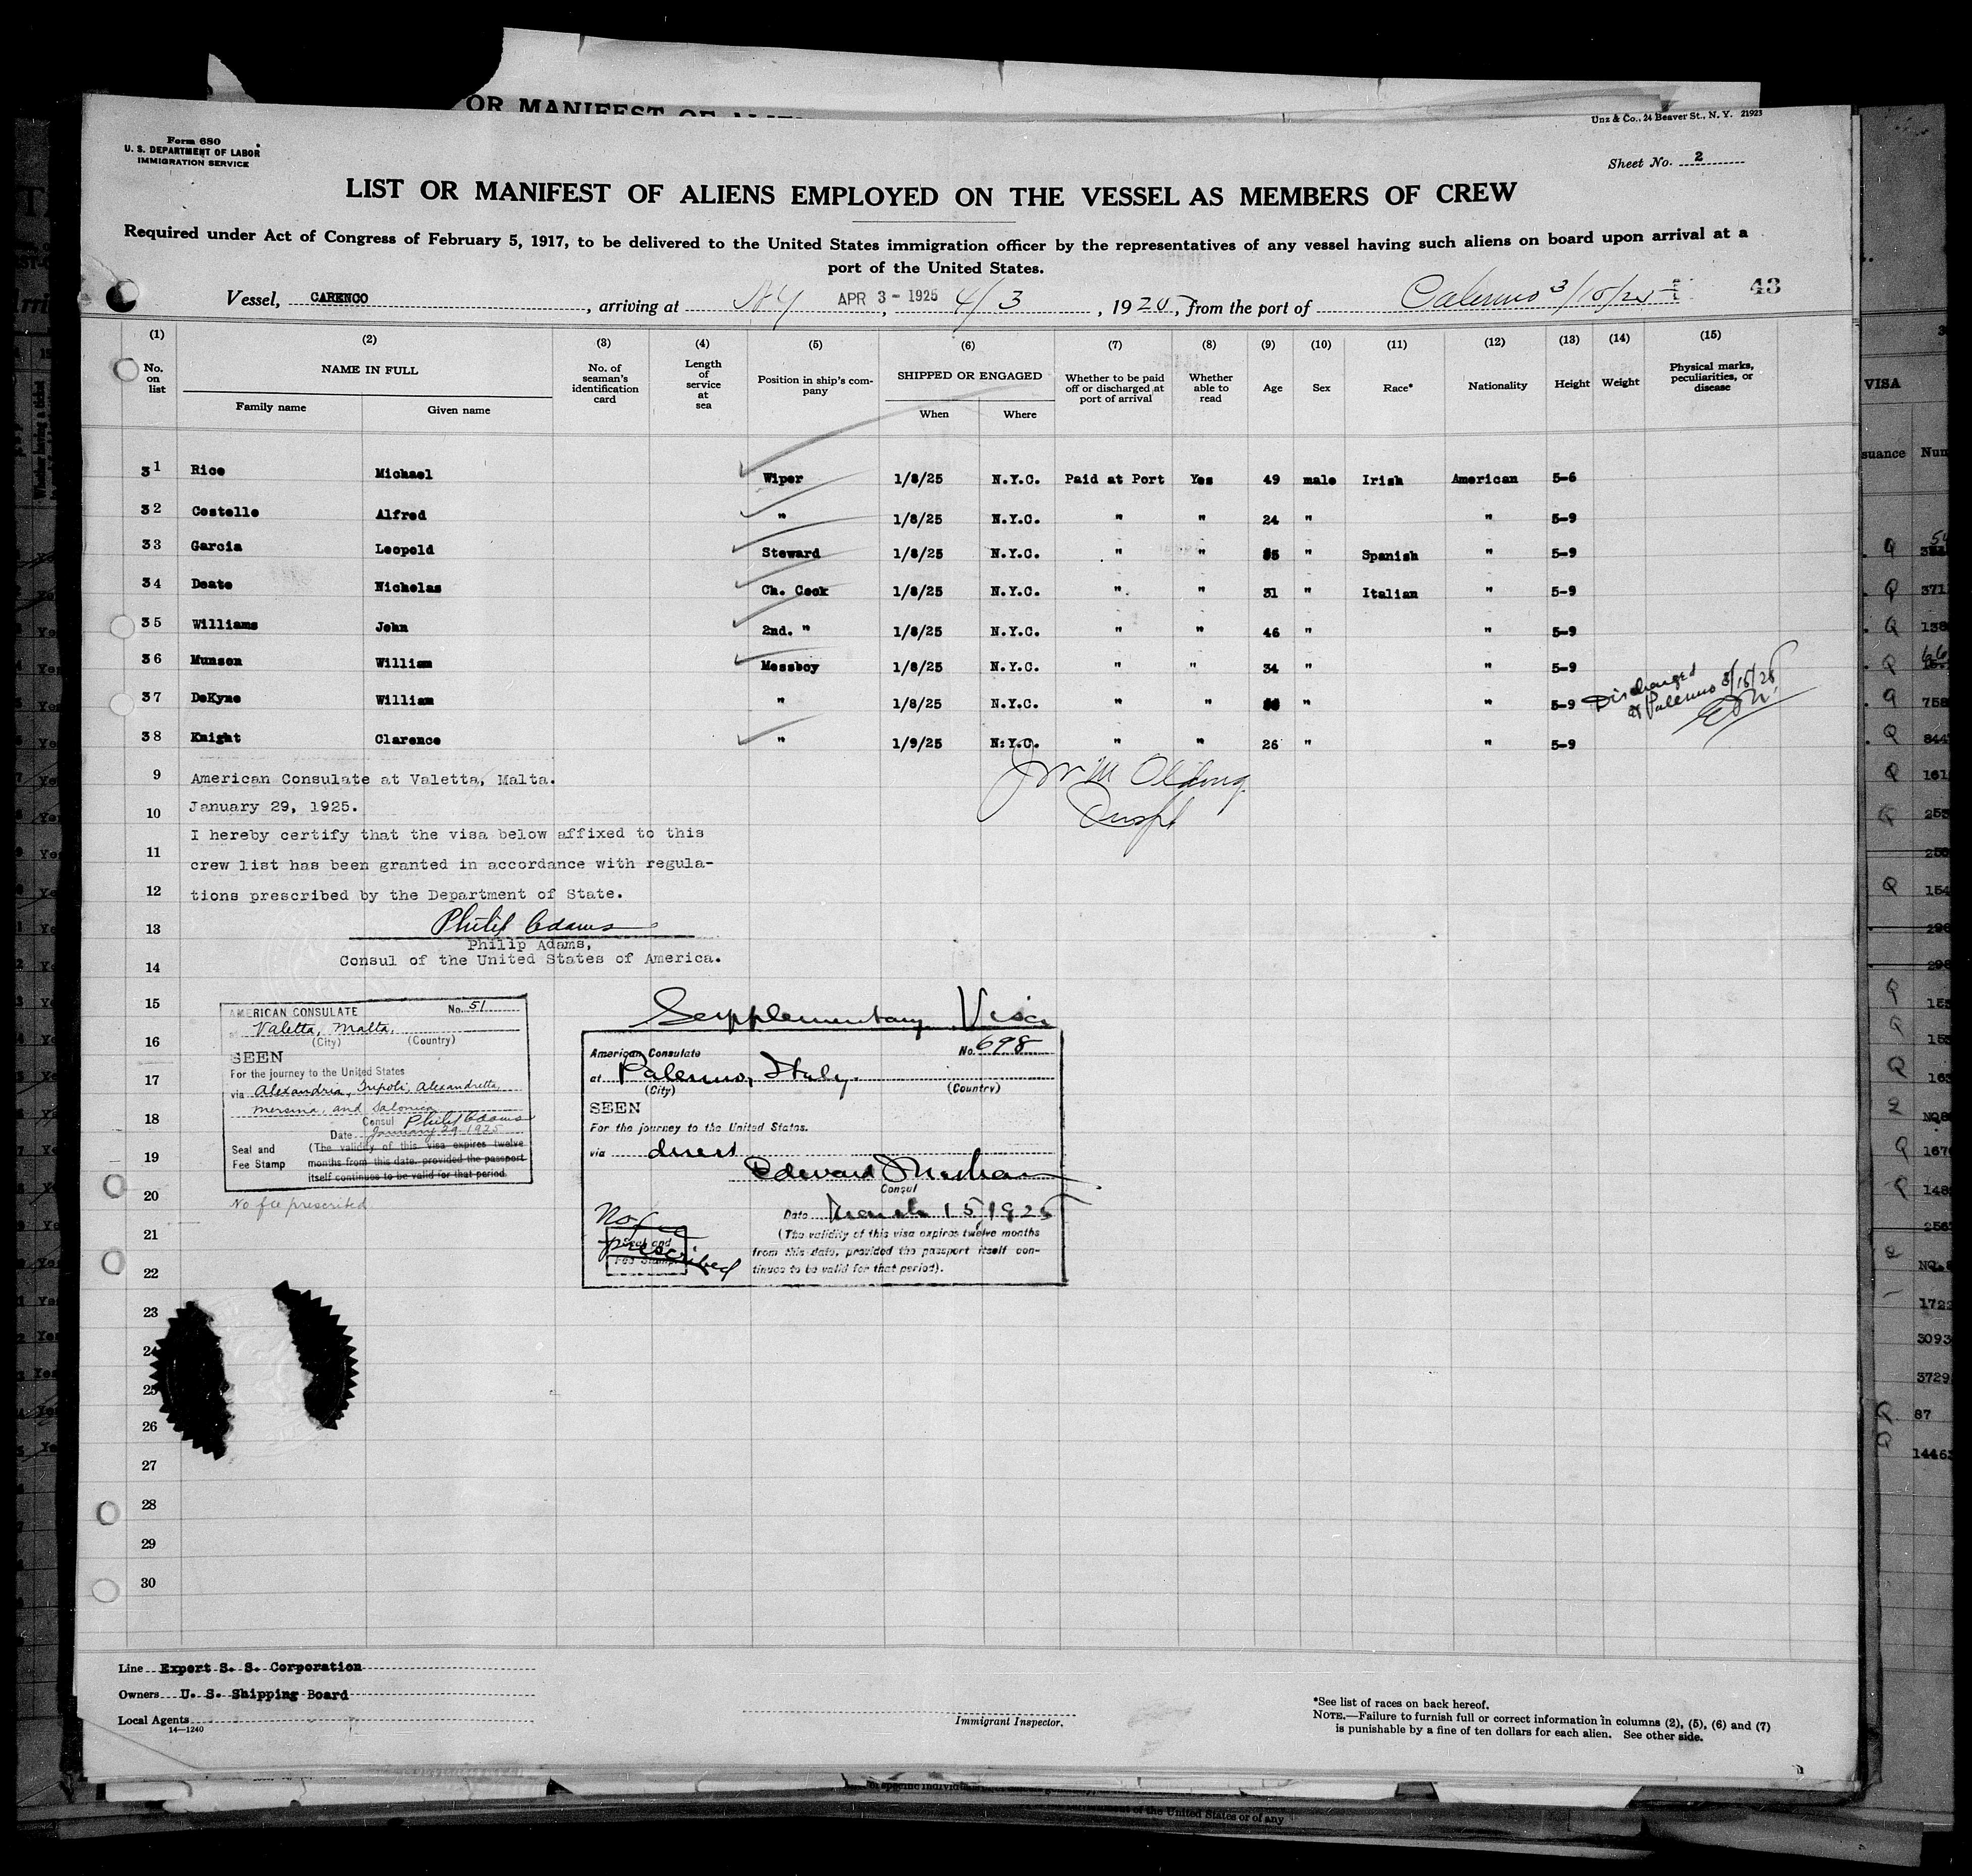 OR MANIFEST OF ALIEN
Unz & Co., 24 Beaver St., N. Y. 21923
Form 680
U. S. DEPARTMENT OF LABOR
IMMIGRATION SERVICE
Sheet No. 2
LIST OR MANIFEST OF ALIENS EMPLOYED ON THE VESSEL AS MEMBERS OF CREW
Required under Act of Congress of February 5, 1917, to be delivered to the United States immigration officer by the representatives of any vessel having such aliens on board upon arrival at a
port of the United States.
Vessel, CARENCO, arriving at NY APR 3 - 1925, 4/3, 1925, from the port of Palermo 3/15/25 43
(1) (2) (3) (4) (5) (6) (7) (8) (9) (10) (11) (12) (13) (14) (15)
No. on list NAME IN FULL No. of seaman's identification card Length of service at sea Position in ship's company SHIPPED OR ENGAGED Whether to be paid off or discharged at port of arrival Whether able to read Age Sex Race* Nationality Height Weight Physical marks, peculiarities, or disease
Family name Given name When Where
31 Rice Michael Wiper 1/8/25 N.Y.C. Paid at Port Yes 49 male Irish American 5-6
32 Costello Alfred " 1/8/25 N.Y.C. " " 24 " " 5-9
33 Garcia Leopold Steward 1/8/25 N.Y.C. " " 35 " Spanish " 5-9
34 Deate Nicholas Ch. Cook 1/8/25 N.Y.C. " " 31 " Italian " 5-9
35 Williams John 2nd. " 1/8/25 N.Y.C. " " 46 " " 5-9
36 Munsen William Messboy 1/8/25 N.Y.C. " " 34 " " 5-9
37 DeKyne William " 1/8/25 N.Y.C. " " " " 5-9 Discharged at Palermo 3/15/25
38 Knight Clarence " 1/9/25 N.Y.C. " " 26 " " 5-9
9 American Consulate at Valetta, Malta.
10 January 29, 1925.
I hereby certify that the visa below affixed to this
11
crew list has been granted in accordance with regula-
12 tions prescribed by the Department of State.
13 Philip Adams
Philip Adams,
Consul of the United States of America.
14
15
16
17
18
19
20
21
22
23
24
25
26
27
28
29
30
AMERICAN CONSULATE No. 51
at Valetta, Malta.
(City) (Country)
SEEN
For the journey to the United States
via Alexandria, Tripoli, Alexandretta,
Mersina, and Salonica
Consul Philip Adams
Date January 29 1925
Seal and Fee Stamp (The validity of this visa expires twelve
months from this date, provided the passport
itself continues to be valid for that period.
No fee prescribed
Supplementary Visa
American Consulate No. 698
at Palermo, Italy.
(City) (Country)
SEEN
For the journey to the United States.
via direct
Edward
Consul
Date March 15, 1925
No fee
prescribed
Seal and
Fee Stamp
(The validity of this visa expires twelve months
from this date, provided the passport itself con-
tinues to be valid for that period).
Line Export S. S. Corporation
Owners U. S. Shipping Board
Local Agents
14—1240
Immigrant Inspector.
*See list of races on back hereof.
NOTE.—Failure to furnish full or correct information in columns (2), (5), (6) and (7)
is punishable by a fine of ten dollars for each alien. See other side.